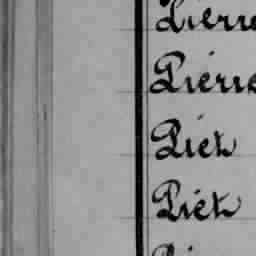 Pierre
Pierre
Piet
Piet